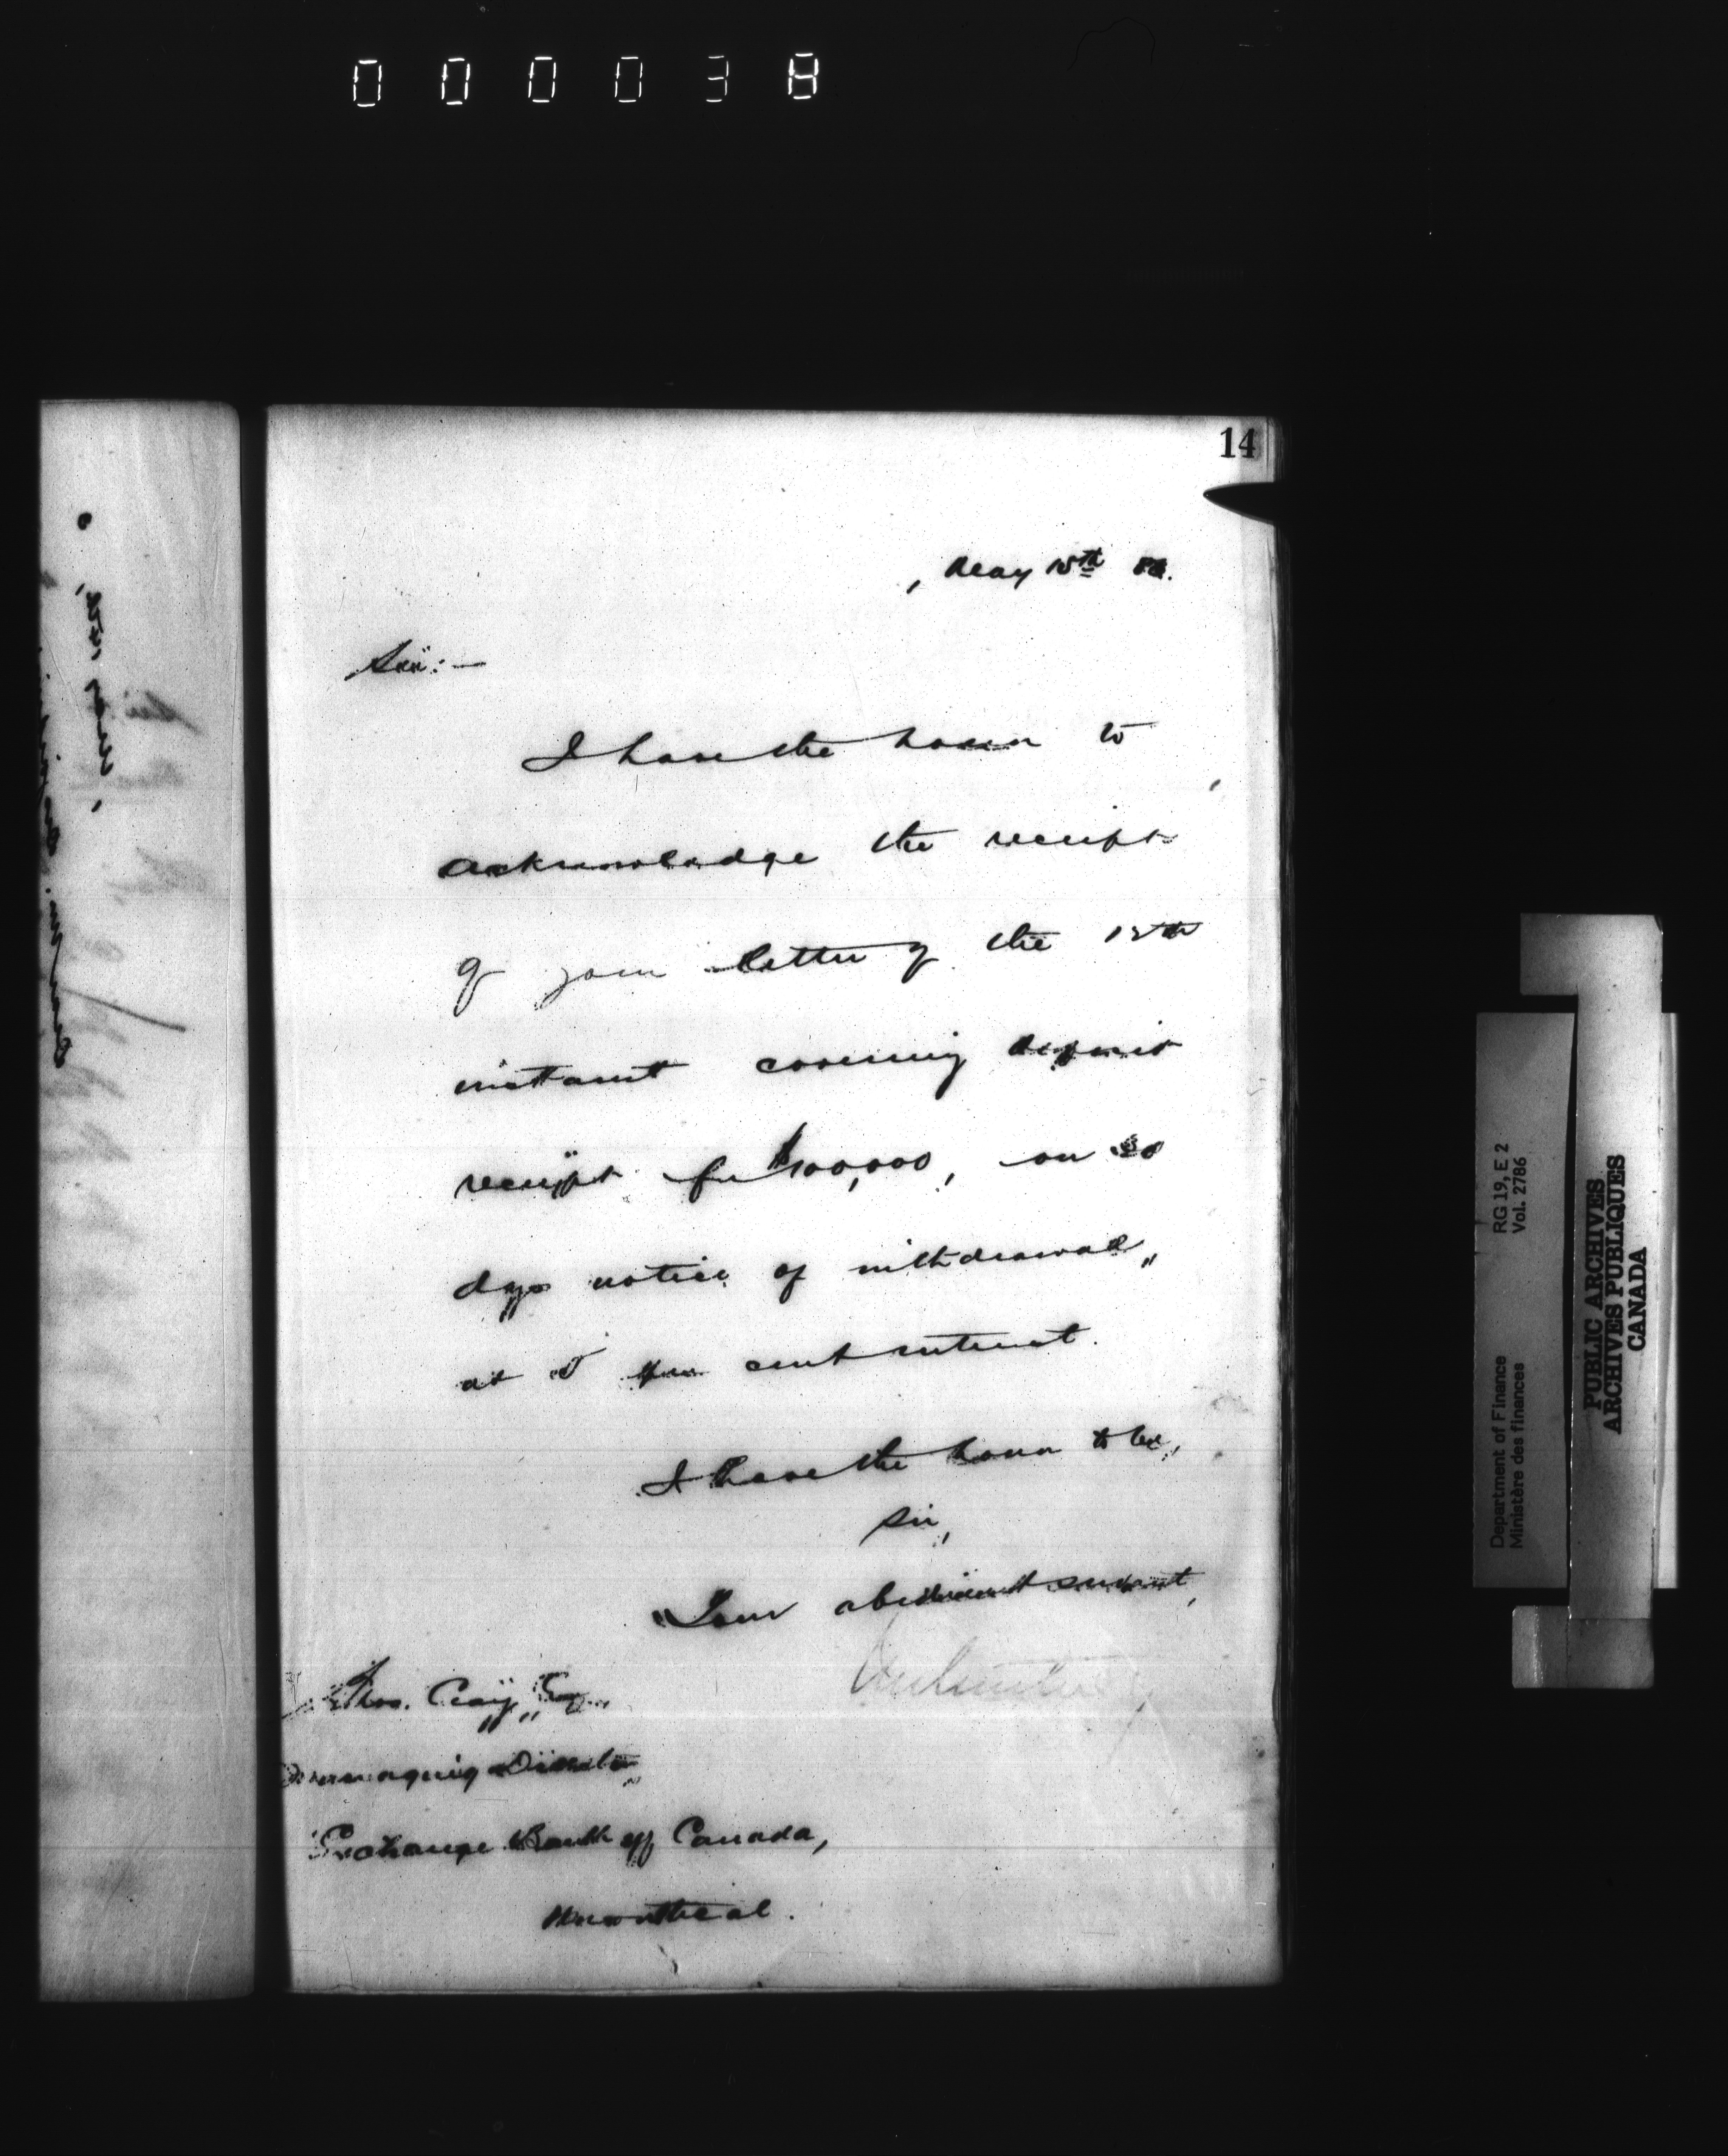 000038
14
, May 15th 83.
Sir:—
I have the honor to
acknowledge the receipt
of your letter of the 12th
instant covering deposit
receipt for $100,000, on 30
dys notice of withdrawal,
at 5 per cent interest.
I have the honor to be,
Sir,
Your obedient servant,
Thos. Craig, Esq.,
Managing Director,
Exchange Bank of Canada,
Montreal.
Department of Finance RG 19, E 2
Ministère des finances Vol. 2786
PUBLIC ARCHIVES
ARCHIVES PUBLIQUES
CANADA